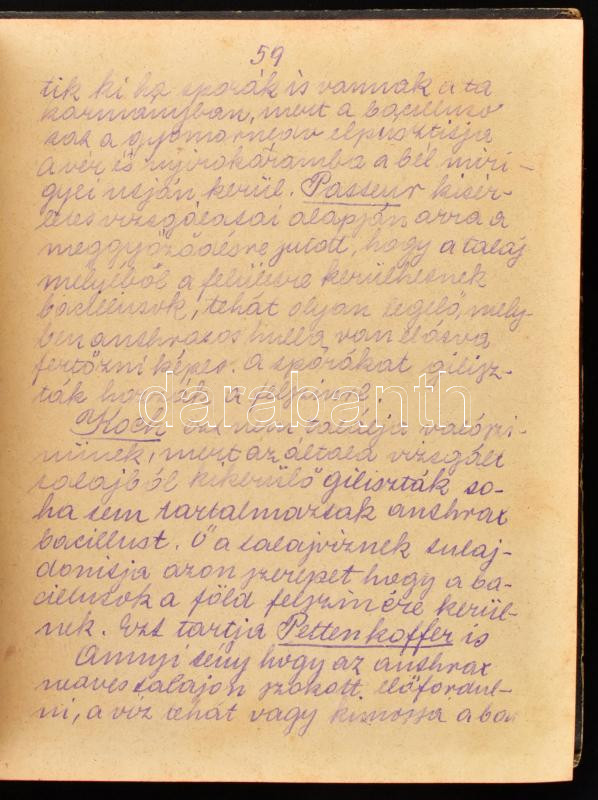 59
tik ki ha spórák is vannak a ta
karmányban, mert a bacilluso
kat a gyomornedv elpusztitja
A vér és nyirokáramba a bél miri-
gyei utján kerül. Pasteur kisér-
letes vizsgálatai alapján arra a
meggyőződésre jutott, hogy a talaj
mélyéből a felületre kerülhetnek
bacillusok, tehát olyan legelő, mely-
ben anthraxos hulla van elásva
fertőzni képes. A spórákat gilisz-
ták hozzák a felszinre.
Koch ezt nem találja valószi-
nünek, mert az általa vizsgált
talajból kikerülő giliszták so-
ha sem tartalmaztak anthrax
bacillust. Ő a talajviznek tulaj-
donitja azon szerepet hogy a ba-
cillusok a föld felszinére kerül-
nek. Ezt tartja Pettenkoffer is
Annyi tény hogy az anthrax
nedves talajon szokott előfordul-
ni, a viz tehát vagy kimossa a ba
darabanth